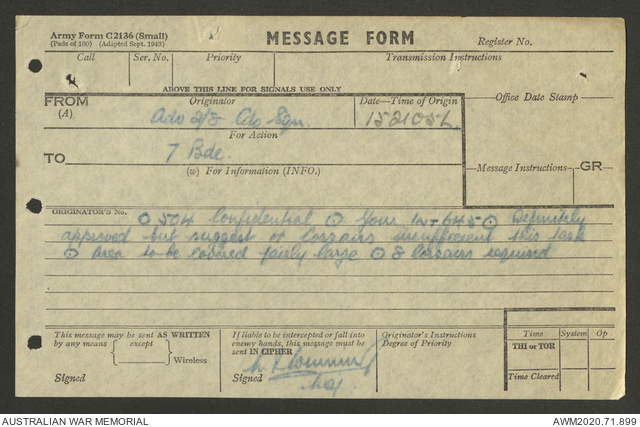 Army Form C2136 (Small)
(Pads of 100) (Adapted Sept. 1943)
MESSAGE FORM
Register No.
Call
Ser. No.
Priority
Transmission Instructions
ABOVE THIS LINE FOR SIGNALS USE ONLY
FROM
(A)
Originator
Adv 2/8 Cdo Sqn.
Date—Time of Origin
152105L
Office Date Stamp
For Action
TO
7 Bde.
(w) For Information (INFO.)
Message Instructions
GR
ORIGINATOR'S No.
O 504 Confidential O Your 645 O Definitely
approved but suggest corsairs insufficient this task
O area to be covered fairly large O 8 corsairs required
This message may be sent AS WRITTEN
by any means except
Wireless
Signed
If liable to be intercepted or fall into
enemy hands, this message must be
sent IN CIPHER
Signed
Maj
Originator's Instructions
Degree of Priority
Time
System
Op
THI or TOR
Time Cleared
AUSTRALIAN WAR MEMORIAL
AWM2020.71.899